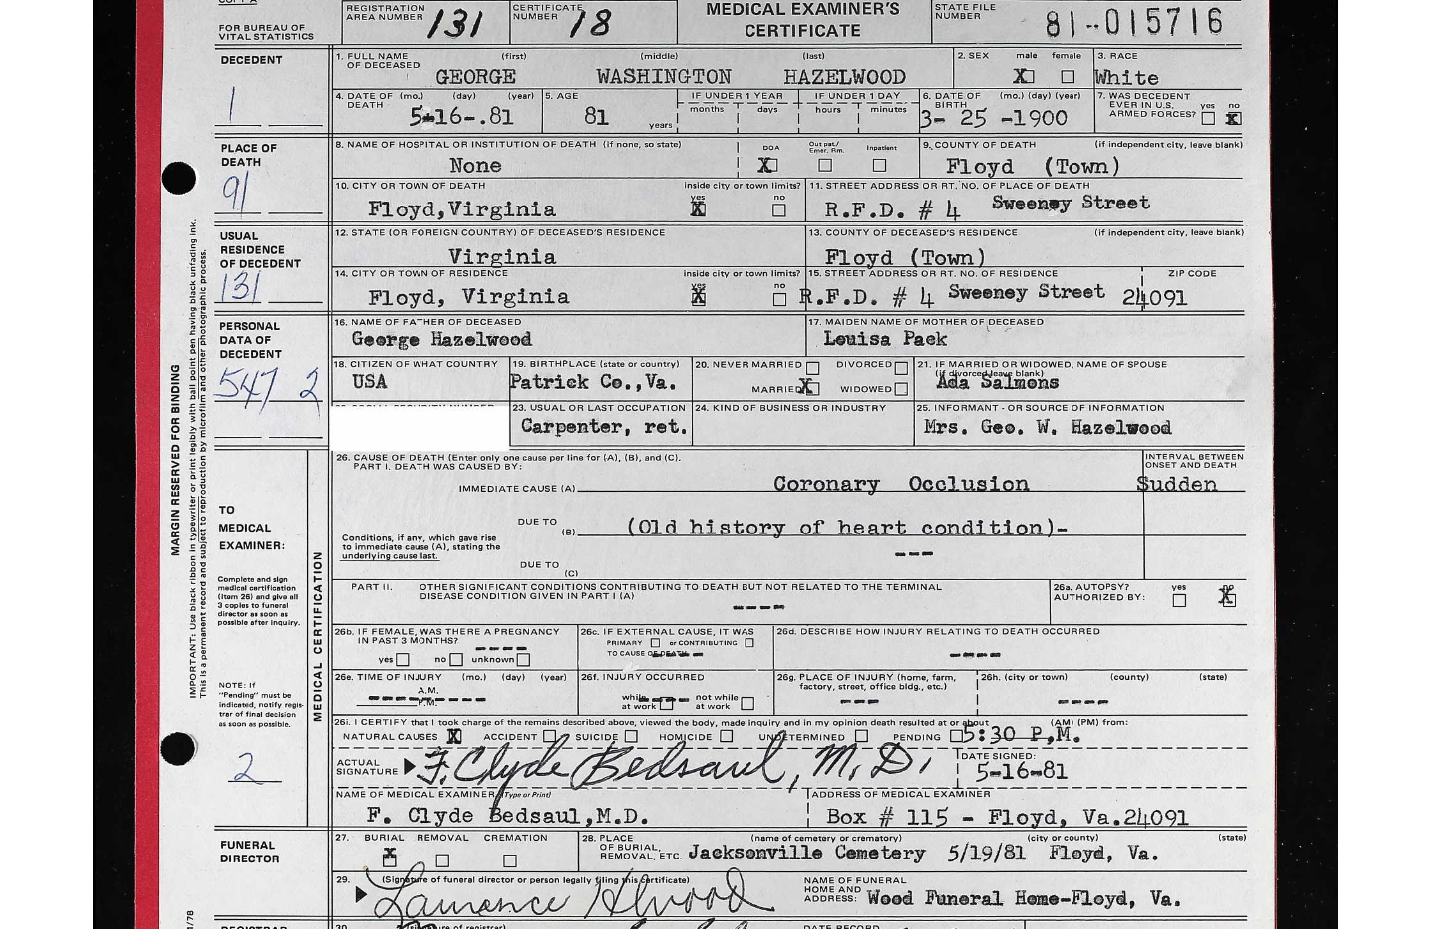 FOR BUREAU OF
VITAL STATISTICS
REGISTRATION
AREA NUMBER 131
CERTIFICATE
NUMBER 18
MEDICAL EXAMINER'S
CERTIFICATE
STATE FILE
NUMBER 81-015716
DECEDENT
1
1. FULL NAME (first) (middle) (last)
OF DECEASED
GEORGE WASHINGTON HAZELWOOD
2. SEX male female
X
3. RACE
White
4. DATE OF (mo.) (day) (year)
DEATH
5-16-.81
5. AGE
81
years
IF UNDER 1 YEAR
months days
IF UNDER 1 DAY
hours minutes
6. DATE OF (mo.) (day) (year)
BIRTH
3- 25 -1900
7. WAS DECEDENT
EVER IN U.S.
ARMED FORCES? yes no
X
PLACE OF
DEATH
91
8. NAME OF HOSPITAL OR INSTITUTION OF DEATH (if none, so state)
None
DOA Out pat/ Emer. Rm. Inpatient
X
9. COUNTY OF DEATH (if independent city, leave blank)
Floyd (Town)
10. CITY OR TOWN OF DEATH
Floyd,Virginia
Inside city or town limits?
yes no
X
11. STREET ADDRESS OR RT. NO. OF PLACE OF DEATH
R.F.D. # 4 Sweeney Street
USUAL
RESIDENCE
OF DECEDENT
131
12. STATE (OR FOREIGN COUNTRY) OF DECEASED'S RESIDENCE
Virginia
13. COUNTY OF DECEASED'S RESIDENCE (if independent city, leave blank)
Floyd (Town)
14. CITY OR TOWN OF RESIDENCE
Floyd, Virginia
Inside city or town limits?
yes no
X
15. STREET ADDRESS OR RT. NO. OF RESIDENCE ZIP CODE
R.F.D. # 4 Sweeney Street 24091
PERSONAL
DATA OF
DECEDENT
547 2
16. NAME OF FATHER OF DECEASED
George Hazelwood
17. MAIDEN NAME OF MOTHER OF DECEASED
Louisa Pack
18. CITIZEN OF WHAT COUNTRY
USA
19. BIRTHPLACE (state or country)
Patrick Co.,Va.
20. NEVER MARRIED DIVORCED
MARRIED X WIDOWED
21. IF MARRIED OR WIDOWED, NAME OF SPOUSE
(if divorced leave blank)
Ada Salmons
23. USUAL OR LAST OCCUPATION
Carpenter, ret.
24. KIND OF BUSINESS OR INDUSTRY
25. INFORMANT - OR SOURCE OF INFORMATION
Mrs. Geo. W. Hazelwood
MARGIN RESERVED FOR BINDING
IMPORTANT: Use black ribbon in typewriter or print legibly with ball point pen having black unfading ink.
This is a permanent record and subject to reproduction by microfilm and other photographic process.
TO
MEDICAL
EXAMINER:
Complete and sign
medical certification
(Item 26) and give all
3 copies to funeral
director as soon as
possible after inquiry.
NOTE: If
"Pending" must be
indicated, notify regis-
trar of final decision
as soon as possible.
2
MEDICAL CERTIFICATION
26. CAUSE OF DEATH (Enter only one cause per line for (A), (B), and (C).
PART I. DEATH WAS CAUSED BY:
INTERVAL BETWEEN
ONSET AND DEATH
IMMEDIATE CAUSE (A) Coronary Occlusion Sudden
DUE TO
(B) (Old history of heart condition)-
Conditions, if any, which gave rise
to immediate cause (A), stating the
underlying cause last.
---
DUE TO
(C)
PART II. OTHER SIGNIFICANT CONDITIONS CONTRIBUTING TO DEATH BUT NOT RELATED TO THE TERMINAL
DISEASE CONDITION GIVEN IN PART I (A)
----
26a. AUTOPSY?
AUTHORIZED BY: yes no
X
26b. IF FEMALE, WAS THERE A PREGNANCY
IN PAST 3 MONTHS?
----
yes no unknown
26c. IF EXTERNAL CAUSE, IT WAS
PRIMARY or CONTRIBUTING
TO CAUSE OF DEATH
26d. DESCRIBE HOW INJURY RELATING TO DEATH OCCURRED
----
26e. TIME OF INJURY (mo.) (day) (year)
A.M.
P.M.
26f. INJURY OCCURRED
while not while
at work at work
26g. PLACE OF INJURY (home, farm,
factory, street, office bldg., etc.)
---
26h. (city or town) (county) (state)
----
26i. I CERTIFY that I took charge of the remains described above, viewed the body, made inquiry and in my opinion death resulted at or about (AM) (PM) from:
NATURAL CAUSES X ACCIDENT SUICIDE HOMICIDE UNDETERMINED PENDING 5:30 P,M.
ACTUAL
SIGNATURE F. Clyde Bedsaul, M.D.
DATE SIGNED:
5-16-81
NAME OF MEDICAL EXAMINER (Type or Print)
F. Clyde Bedsaul,M.D.
ADDRESS OF MEDICAL EXAMINER
Box # 115 - Floyd, Va.24091
FUNERAL
DIRECTOR
27. BURIAL REMOVAL CREMATION
X
28. PLACE (name of cemetery or crematory) (city or county) (state)
OF BURIAL,
REMOVAL, ETC. Jacksonville Cemetery 5/19/81 Floyd, Va.
29. (Signature of funeral director or person legally filing this certificate)
NAME OF FUNERAL
HOME AND
ADDRESS: Wood Funeral Home-Floyd, Va.
REGISTRAR
30. (signature of registrar)
DATE RECORD